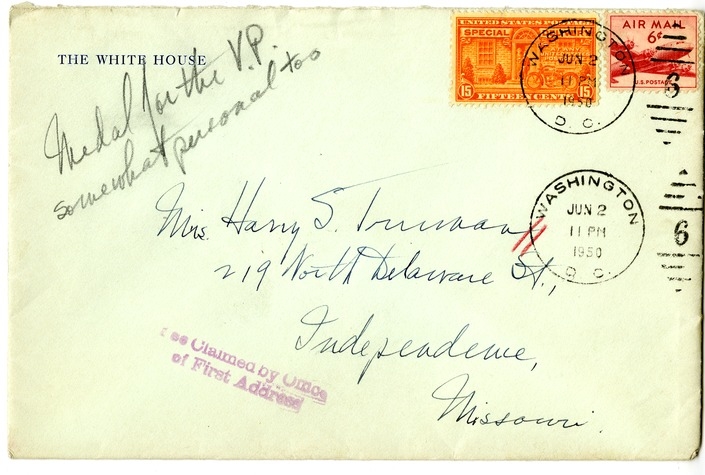 THE WHITE HOUSE
Medal for the V.P.
somewhat personal too
UNITED STATES POSTAGE
SPECIAL
15 15
FIFTEEN CENTS
AIR MAIL
6¢
U.S. POSTAGE
WASHINGTON
JUN 2
11 PM
1950
D. C.
6
WASHINGTON
JUN 2
11 PM
1950
D. C.
6
Mrs. Harry S. Truman
219 North Delaware St.,
Independence,
Missouri.
Fee Claimed by Office
of First Address